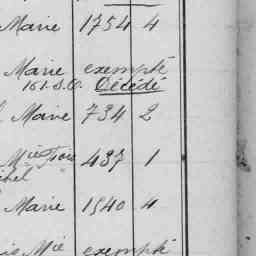 Marie 1754 4
Marie exempté
161.S.O. Décédé
Marie 734 2
Mie 437 1
Marie 1540 4
Mie exempté